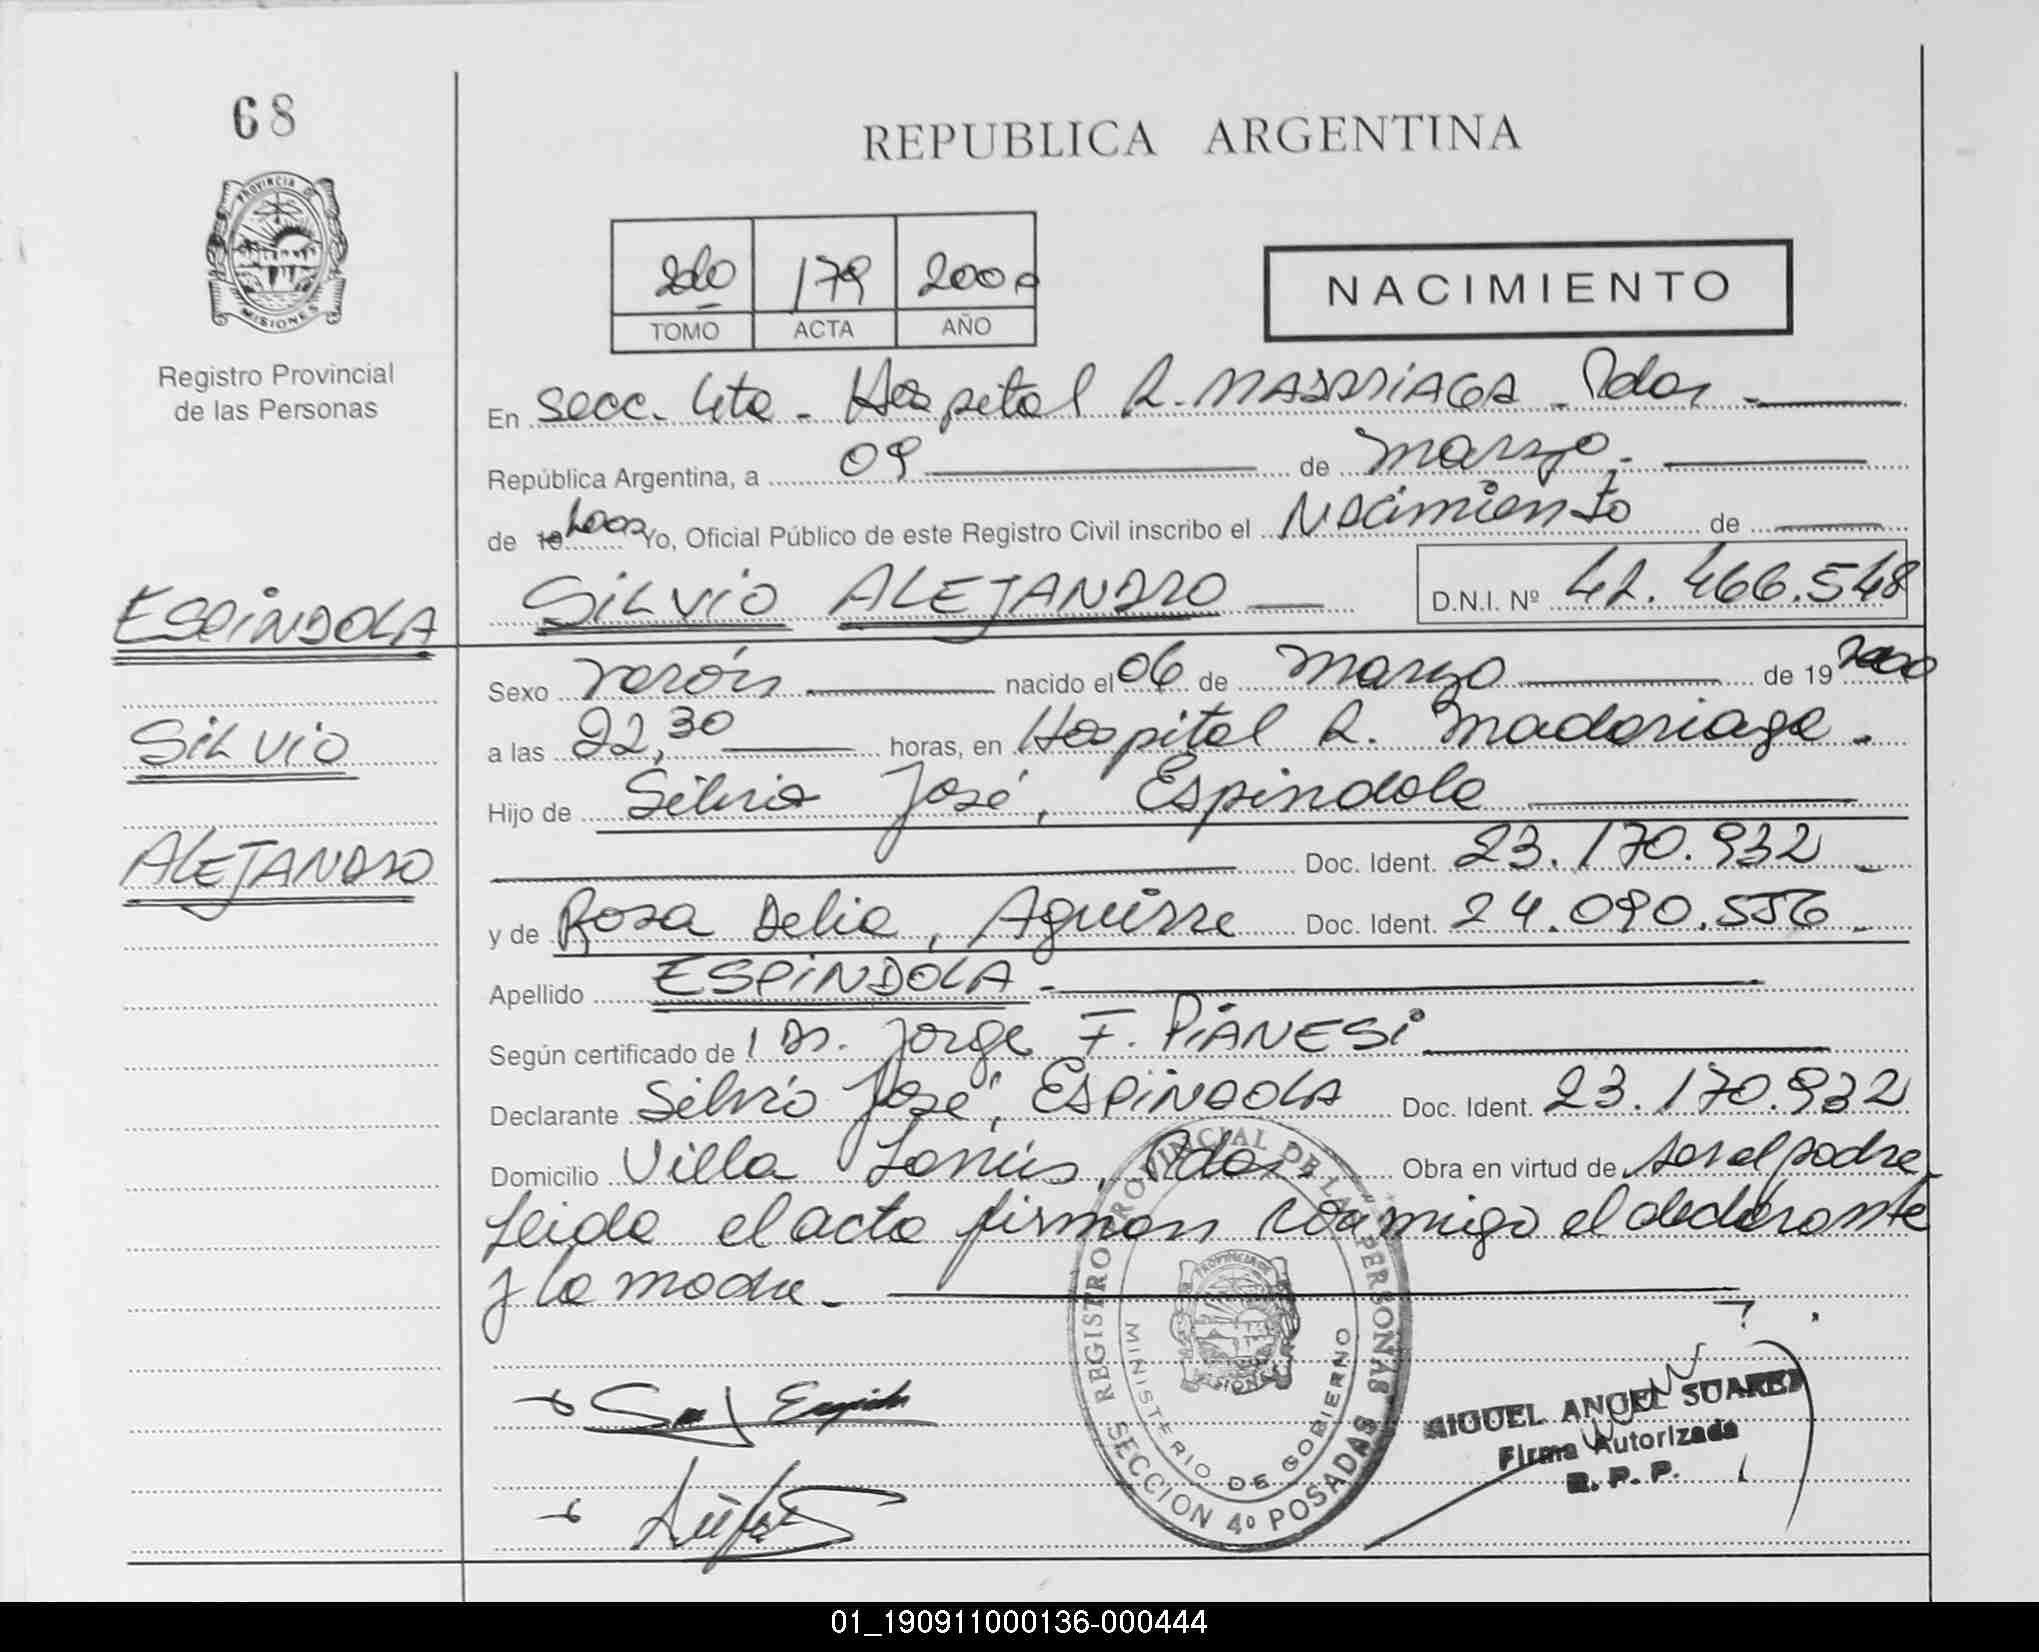 68
REPUBLICA ARGENTINA
PROVINCIA DE
MISIONES
Registro Provincial
de las Personas
2do 179 2000
TOMO ACTA AÑO
NACIMIENTO
En Secc. 4ta - Hospital R. MADARIAGA - Pdas -
República Argentina, a 09 de Marzo.
de 19 2000 Yo, Oficial Público de este Registro Civil inscribo el Nacimiento de
SILVIO ALEJANDRO D.N.I. Nº 42.466.548
ESPINDOLA
SILVIO
ALEJANDRO
Sexo Varón nacido el 06 de Marzo de 19 2000
a las 22,30 horas, en Hospital R. Madariaga.
Hijo de Silvio José, Espindola
Doc. Ident. 23.170.932
y de Rosa Delia, Aguirre Doc. Ident. 24.090.556
Apellido ESPINDOLA -
Según certificado de Dr. Jorge F. PIANESI
Declarante Silvio José, ESPINDOLA Doc. Ident. 23.170.932
Domicilio Villa Lanús, Pdas Obra en virtud de ser el padre.
Leida el acta firman conmigo el declarante
y la madre.
REGISTRO PROVINCIAL DE LAS PERSONAS
MINISTERIO DE GOBIERNO
PROVINCIA DE
MISIONES
SECCION 4º POSADAS
MIGUEL ANGEL SUAREZ
Firma Autorizada
R.P.P.
01_190911000136-000444